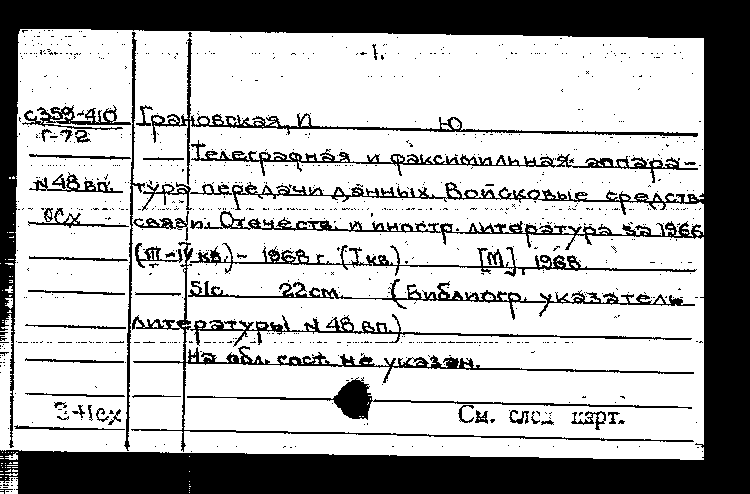 -1.
С359-410 Грановская, И Ю
Г-72
Телеграфная и факсимильная аппара-
N48вп. тура передачи данных. Войсковые средства
осх связи. Отечеств. и иностр. литература за 1966
(III-IV кв.) - 1968 г. (I кв.). [М.], 1968.
51с. 22см. (Библиогр. указатель
литературы N48вп.)
На обл. сост. не указан.
См. след карт.